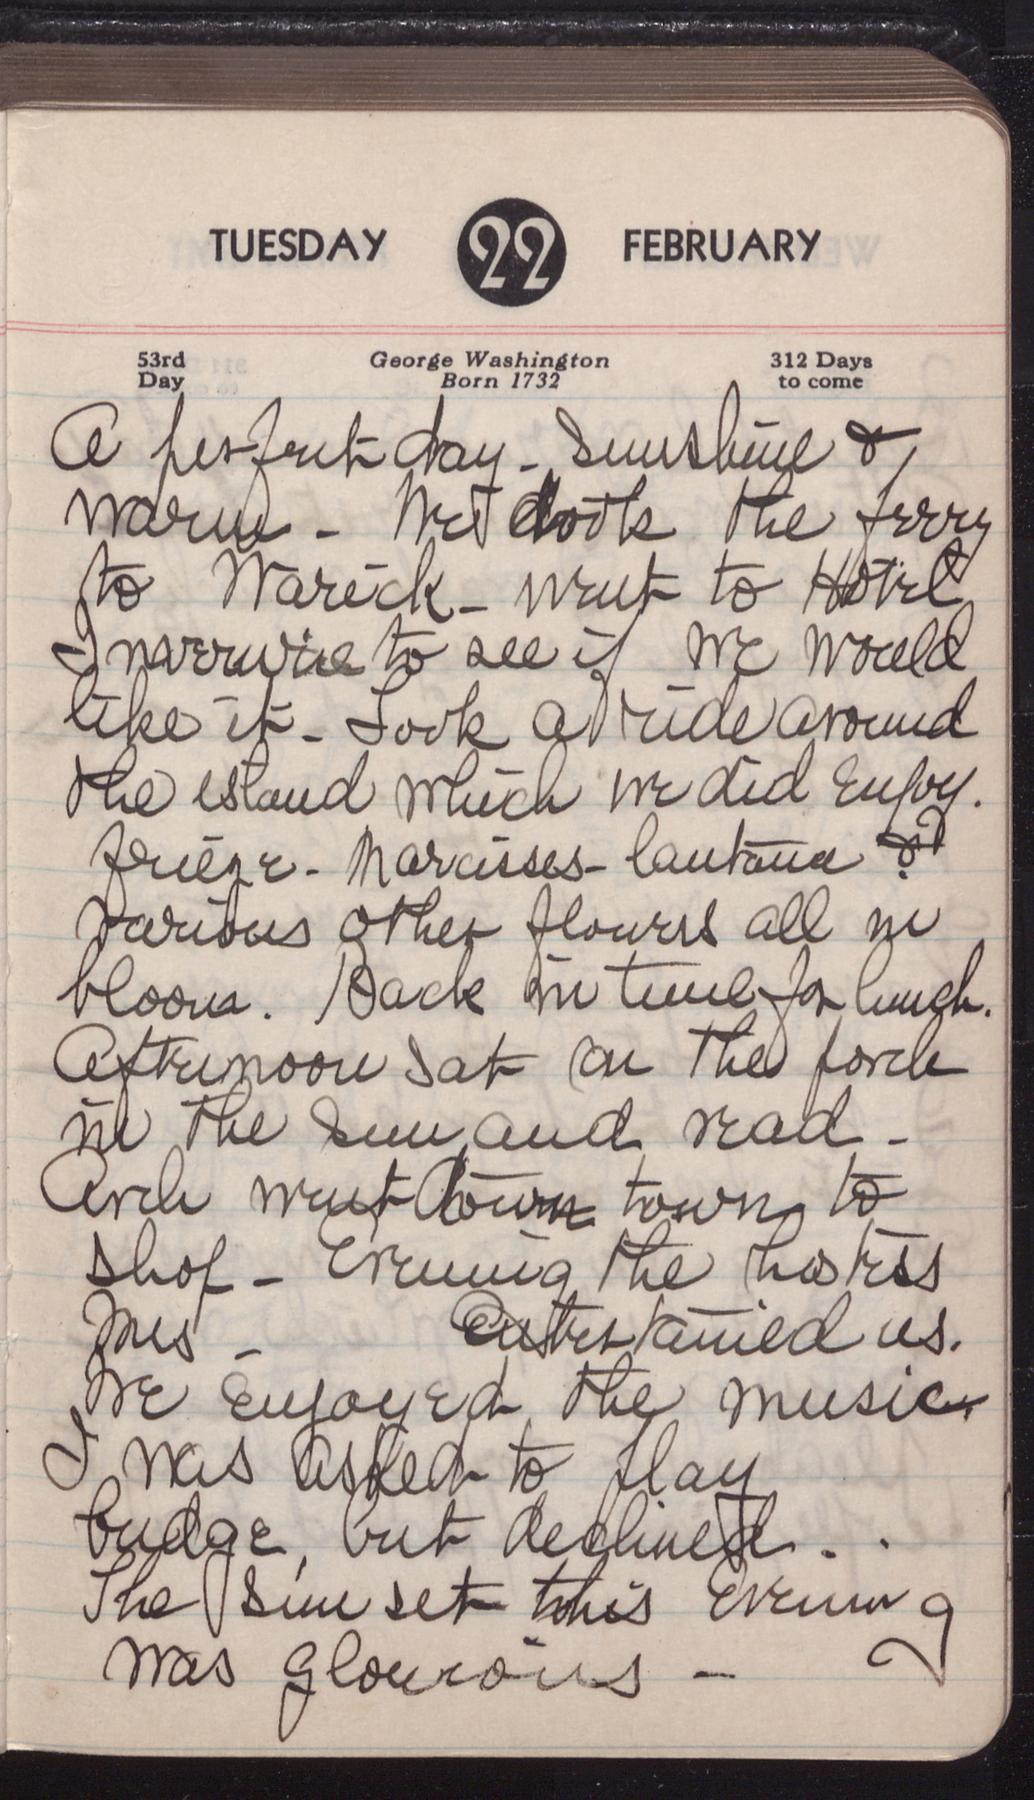 TUESDAY 22 FEBRUARY
53rd Day George Washington Born 1732 312 Days to come
A perfect day - Sunshine &
warm - We took the ferry
to Warick - went to Hotel
Inverurie to see if we would
like it - Took a ride around
the island which we did enjoy.
frieze - Narcisses - lantana &
various other flowers all in
bloom. Back in time for lunch.
Afternoon sat on the porch
in the sun and read -
Arch went down town to
shop - Evening the hostess
Mrs - Entertained us.
We enjoyed the music
I was asked to play
bridge, but declined . .
The sun set this evening
was glourious -